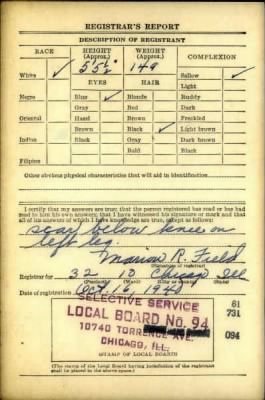 REGISTRAR'S REPORT
DESCRIPTION OF REGISTRANT
RACE HEIGHT (Approx.) WEIGHT (Approx.) COMPLEXION
White ✓ 5 5½ 149 Sallow ✓
EYES HAIR Light
Negro Blue ✓ Blonde Ruddy
Gray Red Dark
Oriental Hazel Brown Freckled
Brown Black ✓ Light brown
Indian Black Gray Dark brown
Bald Black
Filipino
Other obvious physical characteristics that will aid in identification
I certify that my answers are true; that the person registered has read or has had
read to him his own answers; that I have witnessed his signature or mark and that
all of his answers of which I have knowledge are true, except as follows:
scar below knee on
left leg.
Marion R. Field
(Signature of registrar)
Registrar for 32 10 Chicago Ill
(Precinct) (Ward) (City or county) (State)
Date of registration Oct. 16, 1940
SELECTIVE SERVICE
LOCAL BOARD No. 94
10740 TORRENCE AVE.
CHICAGO, ILL.
61
731
094
(STAMP OF LOCAL BOARD)
(The stamp of the Local Board having jurisdiction of the registrant
shall be placed in the above space.)